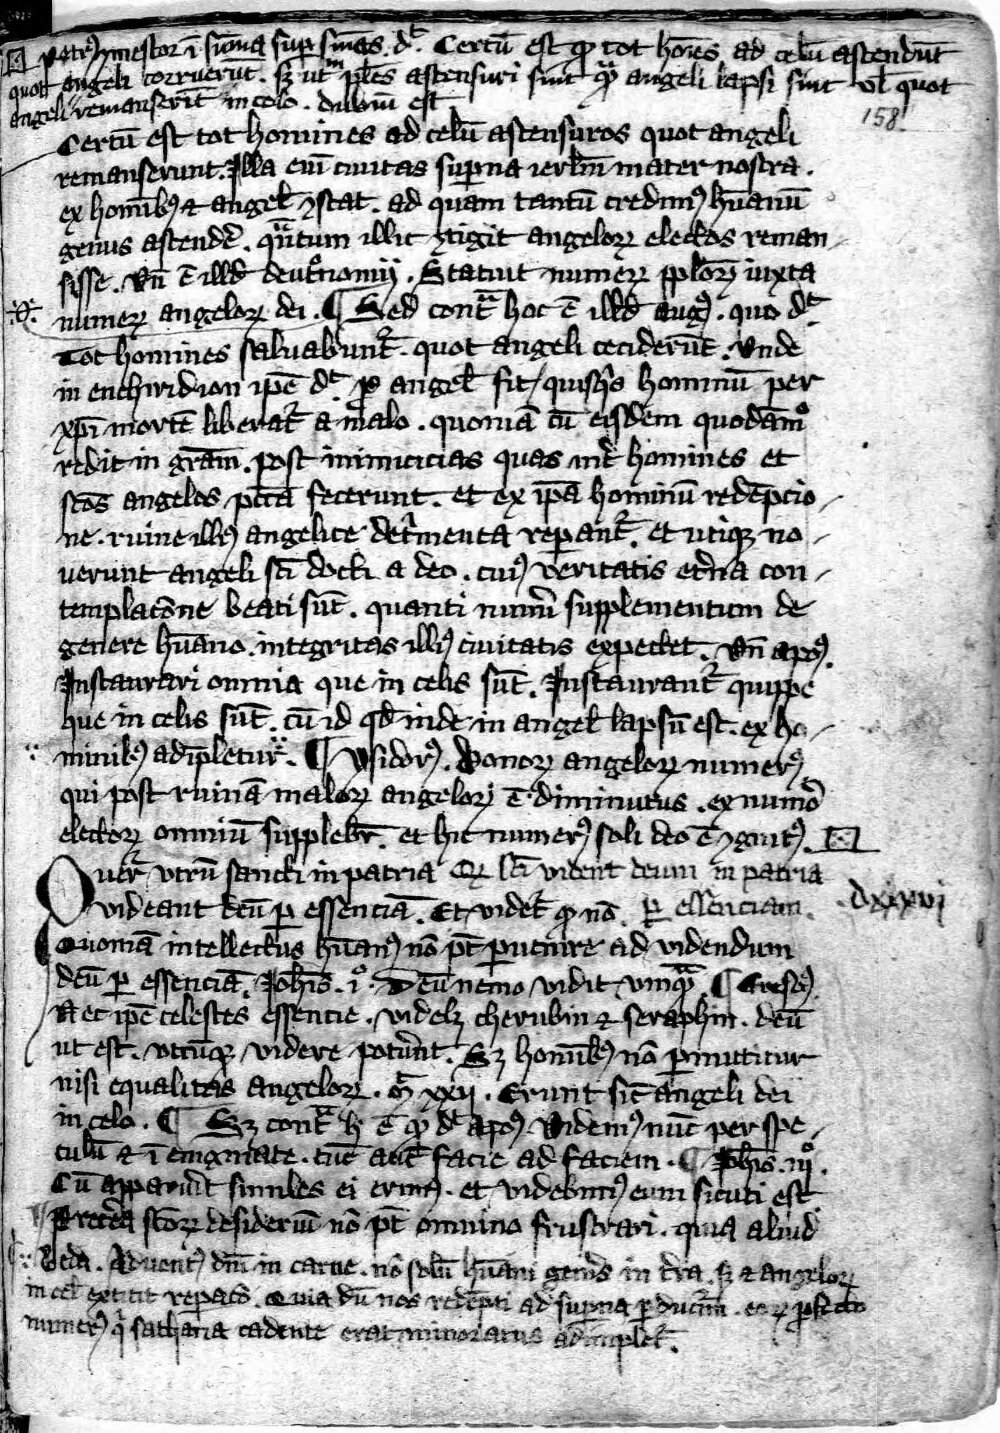 Petrus ymestor i suma sup sinas. dt. Certū est ꝙ tot hoīes ad celū ascendūt
quot angeli corruerūt. sꝫ utm ples astensuri sint qͣ angeli lapsi sint vl quot
angeli remanserīt in celo. dubiū est
158
Certū est tot homines ad celū astensuros quot angeli
remanserunt. Illa enī ciuitas superna ierlm mater nostra.
ex homībꝰ ⁊ angel ꝯstat. ad quam tantū credimꝰ hūanū
genus astendē. qͣntum illic ꝯtigit angeloꝝ electos reman
sisse. Vn̄ ē illd deuťnomij. Statuit numeꝝ pploꝝ iuxta
numeꝝ angeloꝝ dei. ¶ Sed contͣ hoc ē illd augꝰ. quo dt
Tot homines saluabunť. quot angeli ceciderūt. Vnde
in enchiridion ipē dt ꝓ angel fit quisqͥs hominū per
xp̄i mortē liberať a malo. quoniā cū eisdem quodāmº
redit in grām. post inimicicias quas inť homines et
scōs angelos pctā fecerunt. et ex ipā hominū redēpcio
ne. ruine illiꝰ angelice deťmenta reꝑanť. et utiqꝫ no
uerunt angeli scī docti a deo. cuiꝰ veritatis eťna con
templacōne beati sūt. quanti numī supplementum de
genere hūano. integritas illiꝰ ciuitatis expectet. Vn̄ apꝰ.
Instaurari omnia que in celis sūt. Instauranť quippe
que in celis sūt. cū id qd inde in angel lapsū est. ex ho
minibꝰ adīpletur. ¶ Ysidorꝰ. Bonoꝝ angeloꝝ numerꝰ
qui post ruinā maloꝝ angeloꝝ ē diminutus. ex numō
electoꝝ omniū supplebř. et hic numerꝰ soli deo ē ꝯgnitꝰ.
Querͬ vtrū sancti in patria Qꝝ scī vident deum in patria
videant deū ꝑ essenciā. Et videť ꝙ nō. ꝑ essenciam.
dxxxvi
Quoniā intellectus hūanꝰ nō pt ꝑuenire ad videndum
deū ꝑ essenciā. Johīs. iº. Deū nemo vidit vnqͣ. ¶ Crisosꝰ
Nec ipē celestes essencie. videlꝫ cherubin ⁊ seraphin. deū
ut est. vtcūqꝫ videre poťunt. Sꝫ homībꝰ nō ꝑmittitur
nisi equalitas angeloꝝ. mͭ xxij. Erunt sic̄ angeli dei
in celo. ¶ Sꝫ contͣ h ē ꝙ dt apꝰ. Videmꝰ nūc per spe
culū ⁊ ī enigmate. tūc aūt facie ad faciem. ¶ Johīs. iijº.
Cū apparūit similes ei erimꝰ. et videbimꝰ eum sicuti est
Pretea scōꝝ desideriū nō pt omnino frustrari. quia aliud
Beda. Aduentꝰ dnī in carne. nō solū hūani genīs in ťra. sꝫ ⁊ angeloꝝ
in cel extitit reꝑacō. Quia dū nos redēpti ad supna ꝑducimͬ. eoꝝ ꝓfecto
numerꝰ qͥ sathana cadente erat minoratus adimpleť.